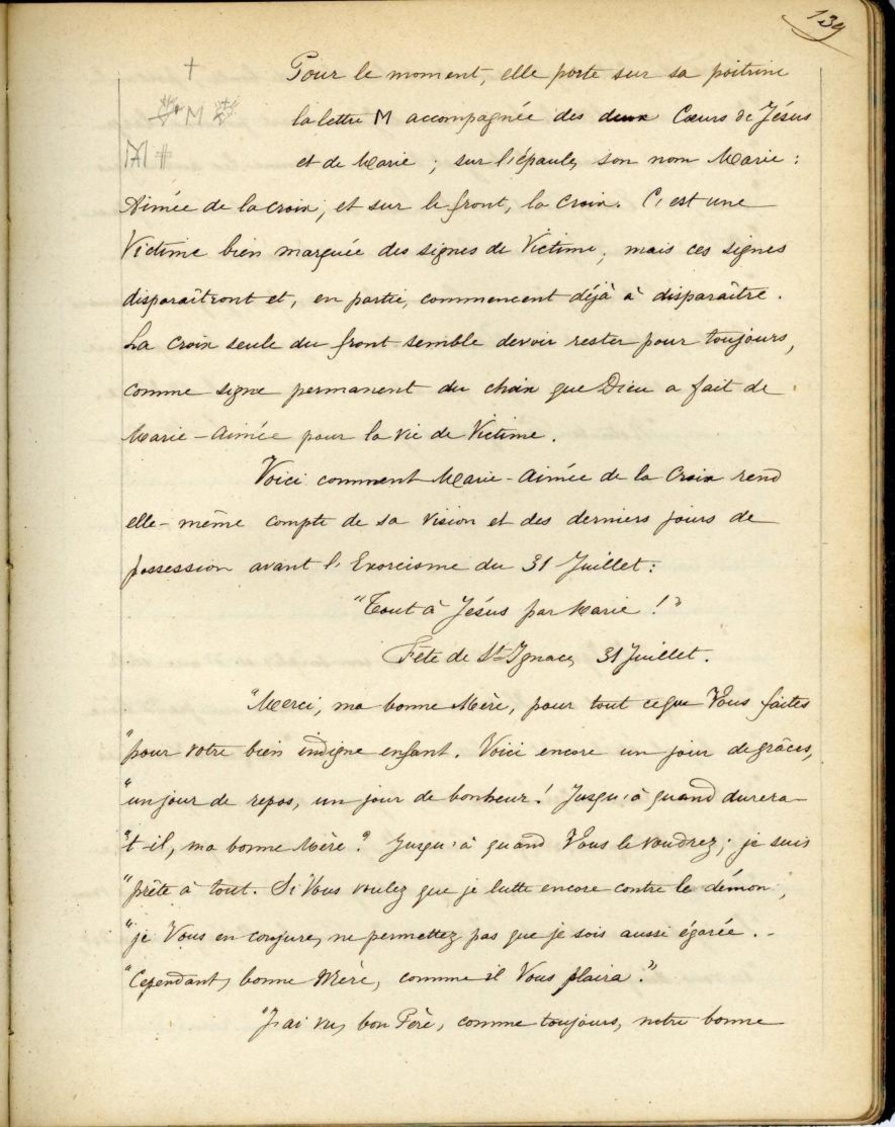 139
†
M
M
Pour le moment, elle porte sur sa poitrine
la lettre M accompagnée des deux Cœurs de Jésus
et de Marie ; sur l'épaule, son nom Marie :
Aimée de la croix ; et sur le front, la Croix. C'est une
Victime bien marquée des signes de Victime ; mais ces signes
disparaîtront et, en partie, commencent déjà à disparaître.
La Croix seule du front semble devoir rester pour toujours,
comme signe permanent du choix que Dieu a fait de
Marie-Aimée pour la vie de Victime.
Voici comment Marie-Aimée de la Croix rend
elle-même compte de sa vision et des derniers jours de
possession avant l'Exorcisme du 31 Juillet :
"Tout à Jésus par Marie !"
Fête de St Ignace, 31 Juillet.
"Merci, ma bonne Mère, pour tout ce que Vous faites
"pour votre bien indigne enfant. Voici encore un jour de grâces,
"un jour de repos, un jour de bonheur ! Jusqu'à quand durera-
"t-il, ma bonne Mère ? Jusqu'à quand Vous le voudrez ; je suis
"prête à tout. Si Vous voulez que je lutte encore contre le démon,
"je Vous en conjure, ne permettez pas que je sois aussi égarée. -
"Cependant, bonne Mère, comme il Vous plaira."
"J'ai vu, bon Père, comme toujours, notre bonne